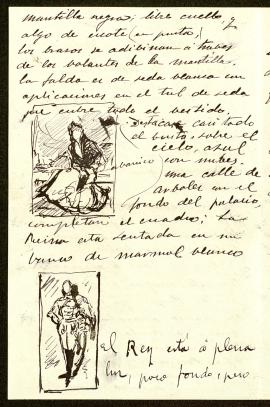 mantilla negra; libre cuello, y
algo de escote (en punta)
los brazos se adibinan á traves
de los bolantes de la mantilla,
la falda es de seda blanca con
aplicaciones en el tul de seda
que cubre todo el vestido.
Destacan casi todo
el busto, sobre el
cielo, azul
abanico
con nubes.
una calle de
arboles en el
fondo del palacio,
completan el cuadro; La
Reina está sentada en un
banco de marmol blanco
el Rey está á plena
luz, poco fondo, pero